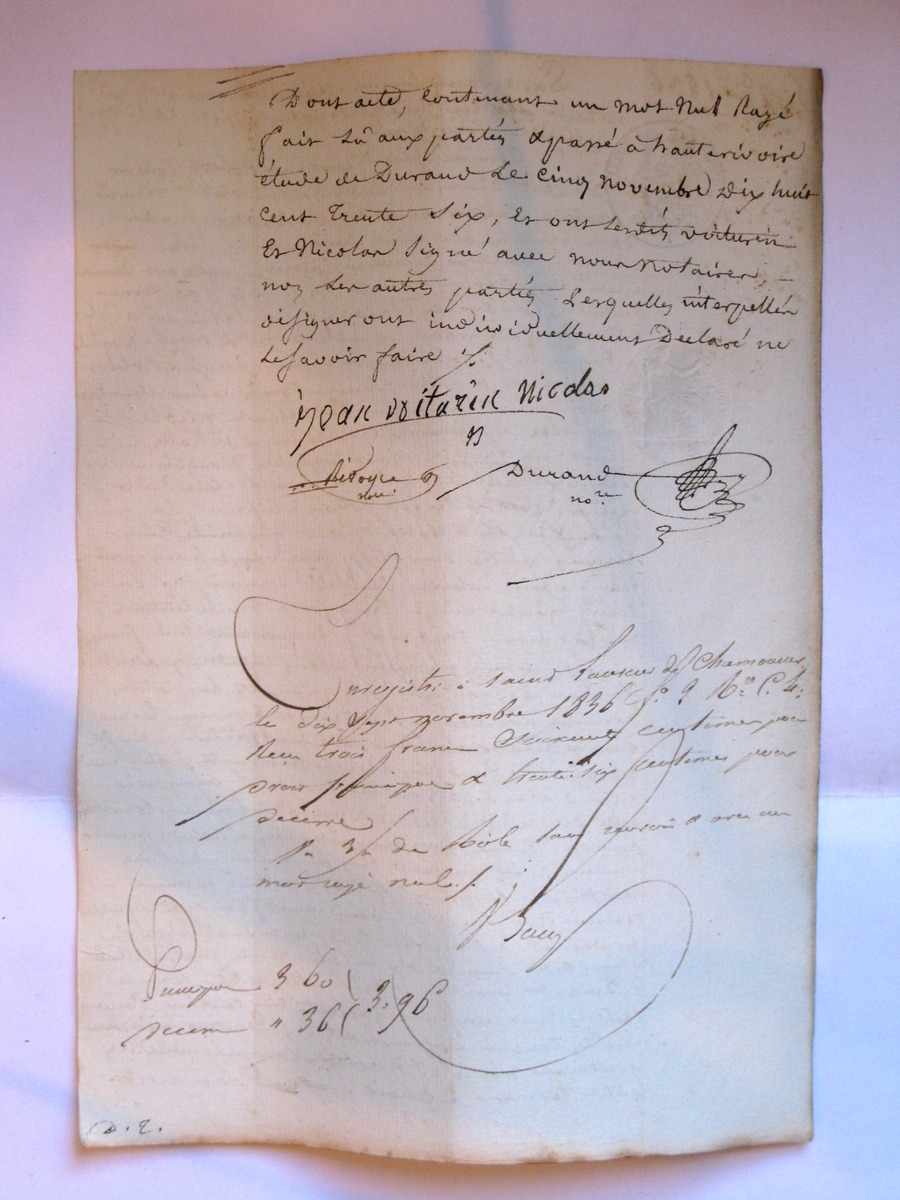 Dont acte, contenant un mot nul Rayé
fait Lu aux partis & passé à hauterivoire
étude de Durand Le cinq novembre Dix huit
cent Trente Six, Et ont Lesdits voiturin
Et Nicolas Signé avec nous Notaires,
non Les autres partiés Lesquelles interpellée
de signer ont individuellement Declaré ne
Le Savoir faire
Jean voiturin Nicolas
Durand
nore
Enregistré à Saint Laurent de Chamousset
le dix sept novembre 1836 fo 9
Reçu trois francs Soixante centimes pour
droit principal & trente six centimes pour
Decime
3 du Rôle Sans renvoi & avec un
mot rayé nul
Principal 3 60 3,96
Decime " 36
D. E.